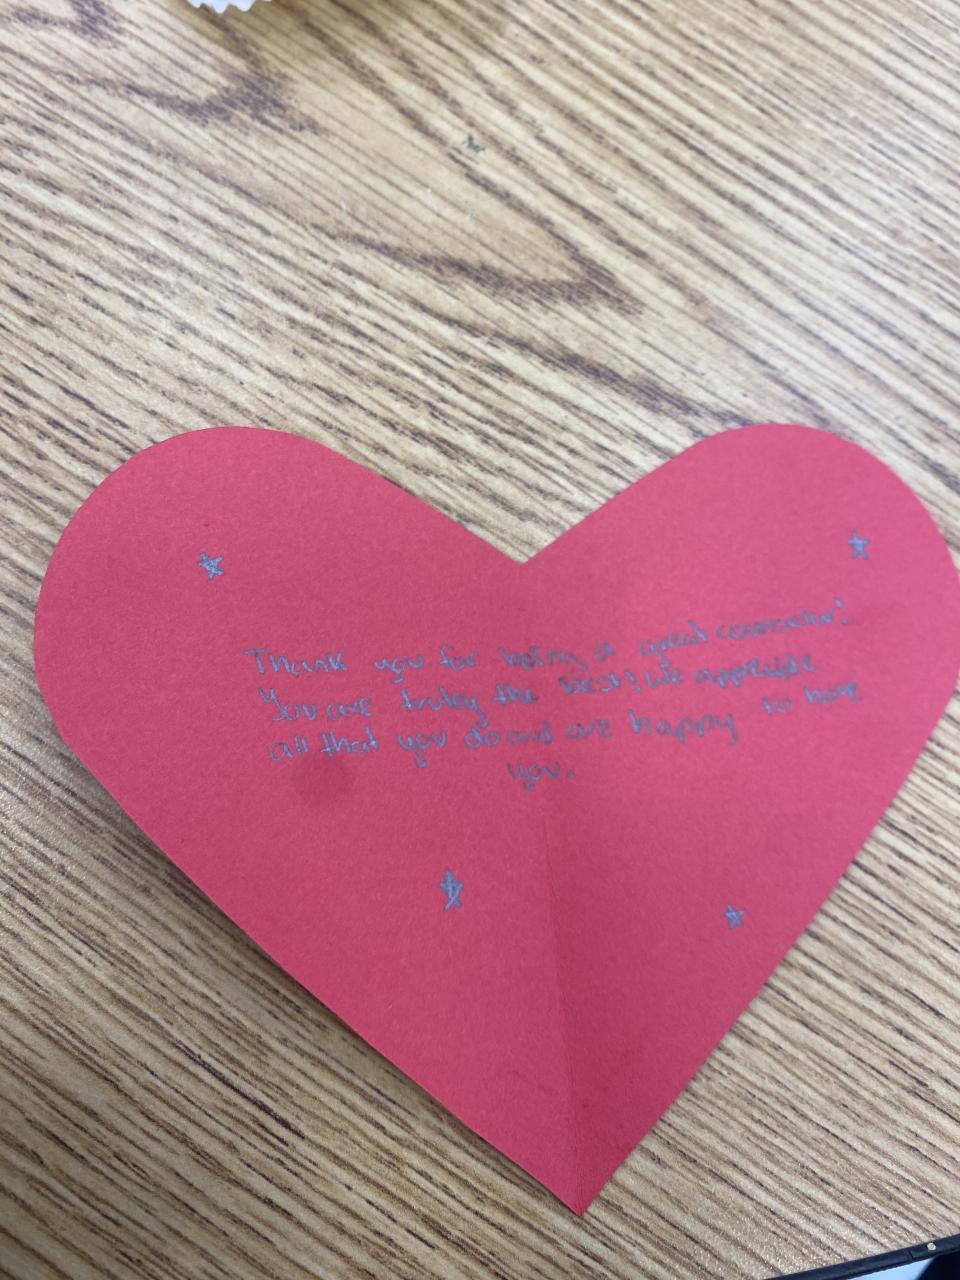 Thank you for being a great counselor!
You are truley the best! We appreciate
all that you do and are happy to have
you.